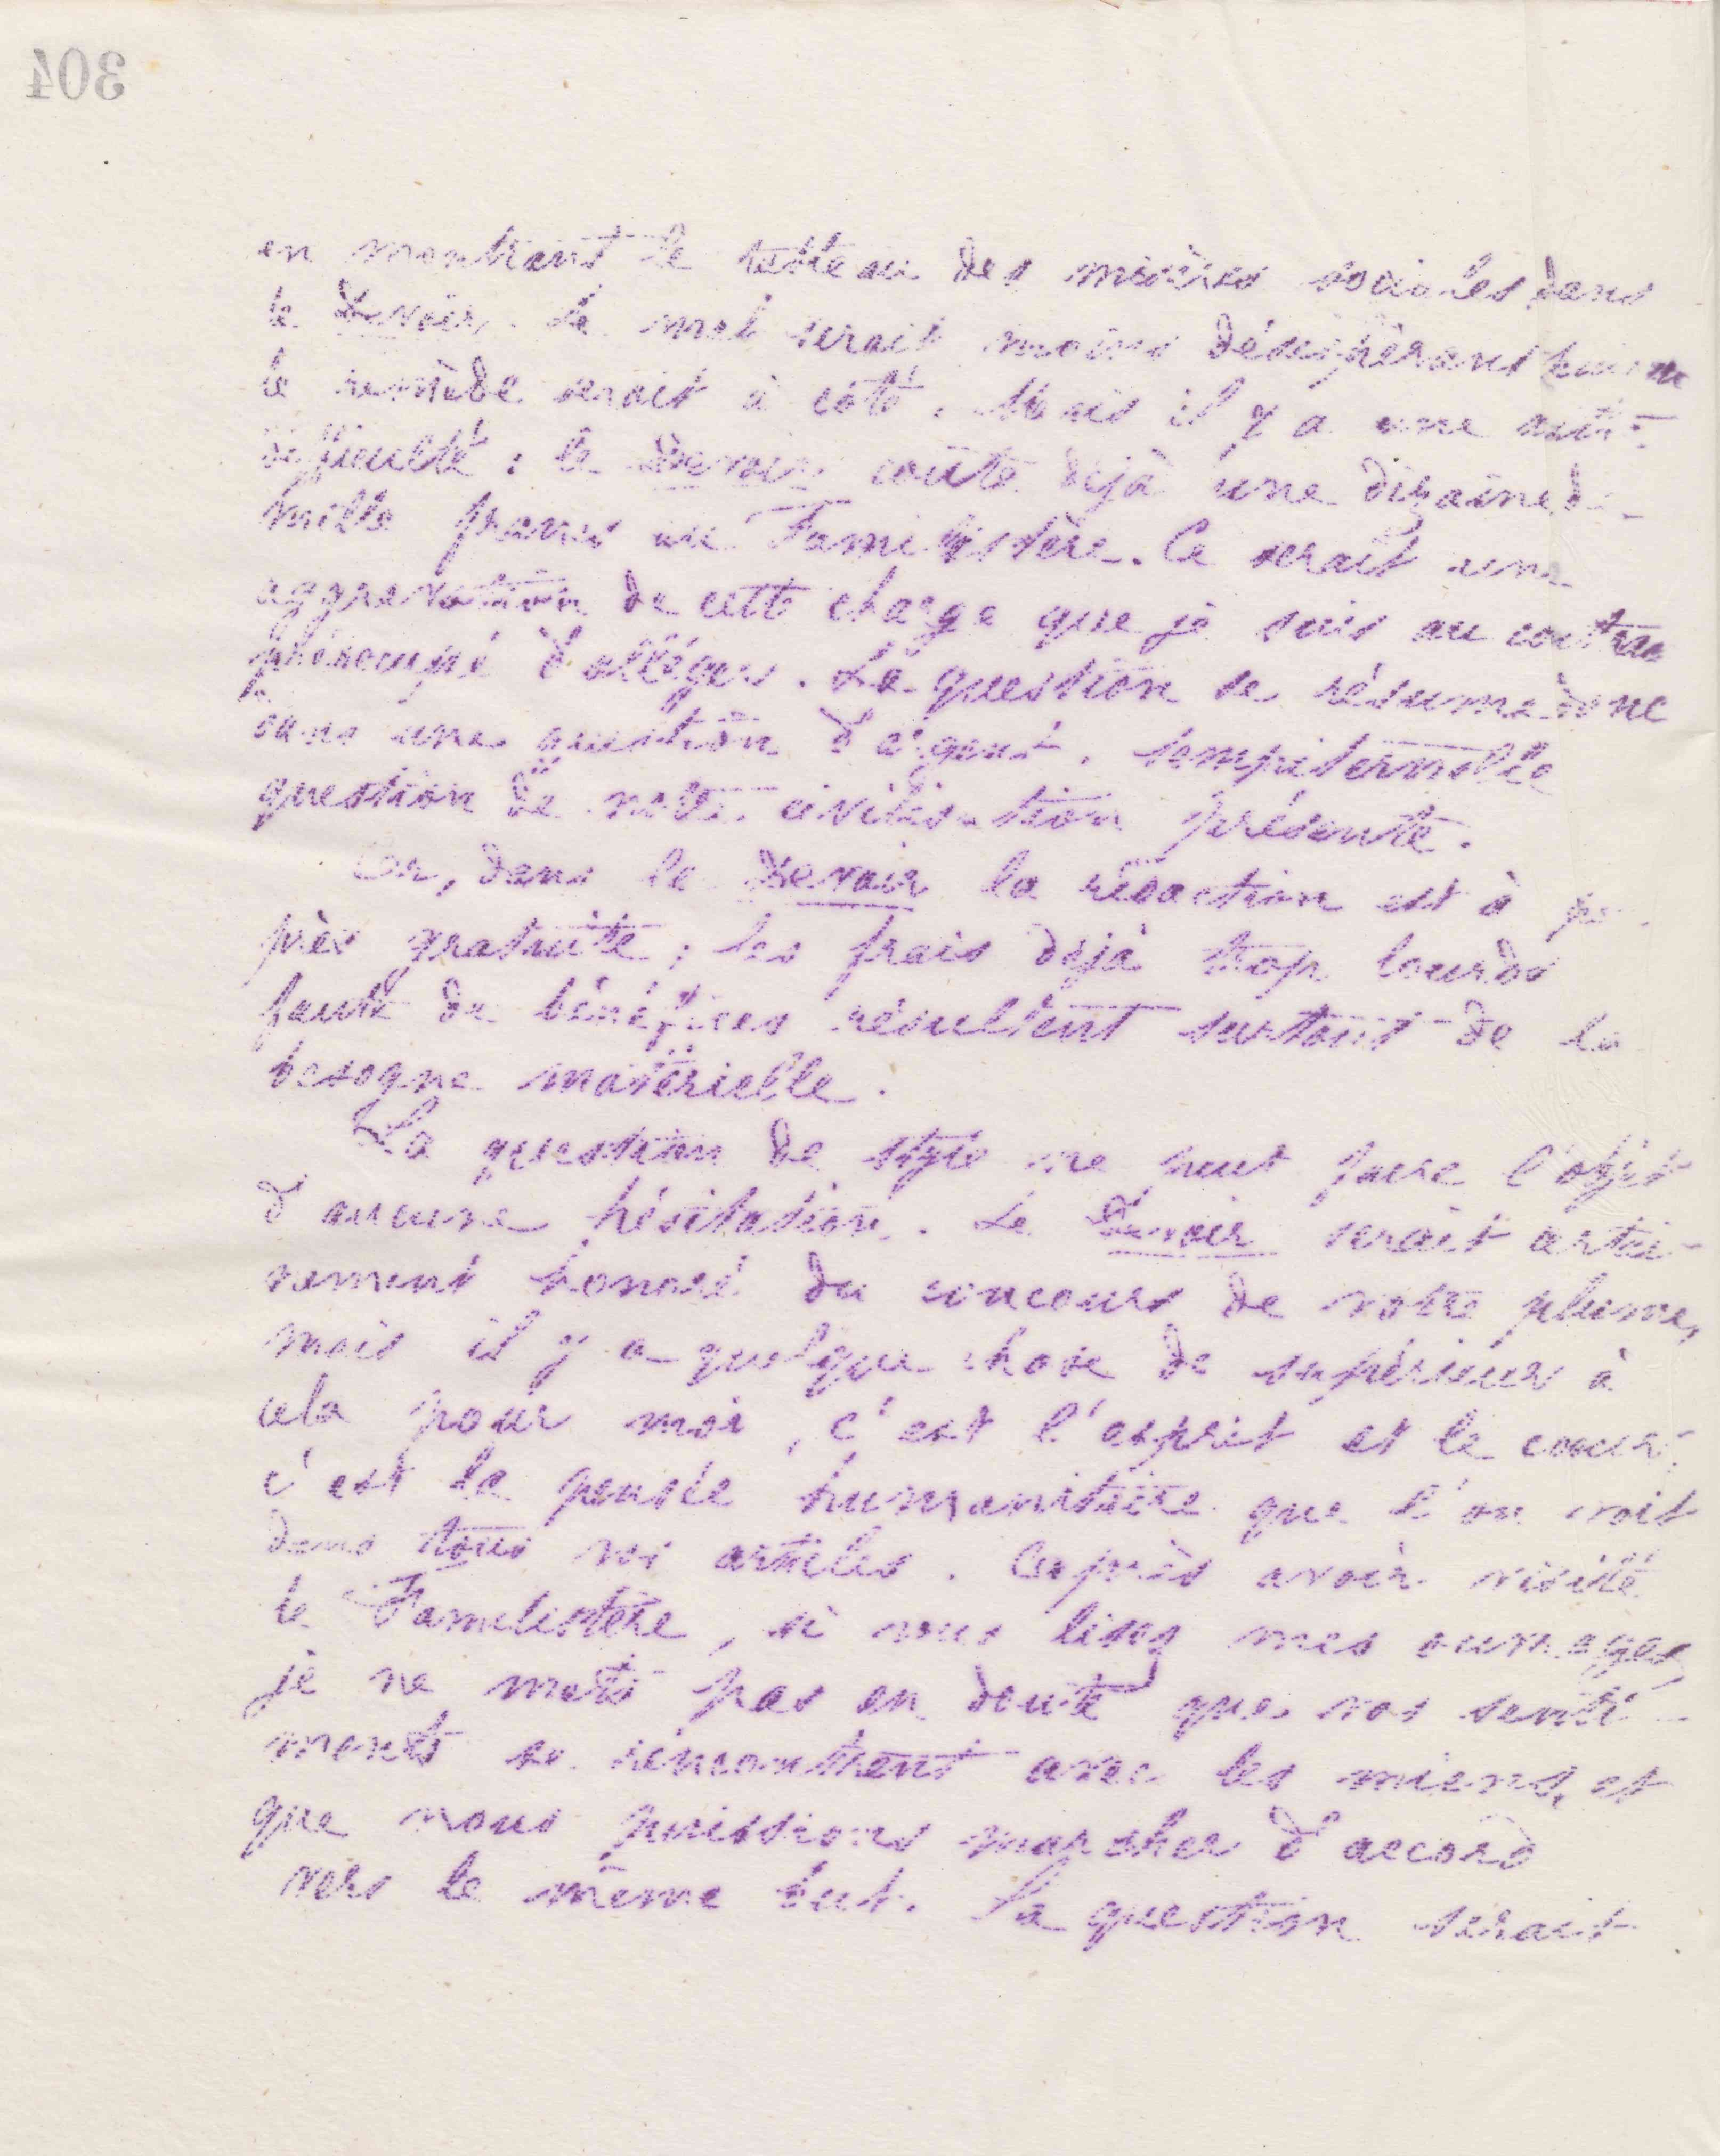 304
en montrant le tableau des misères sociales dans
le Devoir. Le mal serait moins désespérant puisque
le remède serait à côté. Mais il y a une autre
difficulté : le Devoir coûte déjà une dizaine de
mille francs au Familistère. Ce serait une
aggravation de cette charge que je suis au contraire
préoccupé d'alléger. La question se résume donc
dans une question d'argent, sempiternelle
question de notre civilisation présente.
Or, dans le Devoir la rédaction est à peu
près gratuite ; les frais déjà trop lourds
faute de bénéfices résultent surtout de la
besogne matérielle.
La question de style ne peut faire l'objet
d'aucune hésitation. Le Devoir serait certai-
nement honoré du concours de votre plume,
mais il y a quelque chose de supérieur à
cela pour moi, c'est l'esprit et le cœur,
c'est la pensée humanitaire que l'on voit
dans tous vos articles. Après avoir visité
le Familistère, si vous lisez mes ouvrages,
je ne mets pas en doute que vos senti-
ments se rencontrent avec les miens, et
que nous puissions marcher d'accord
vers le même but. La question serait